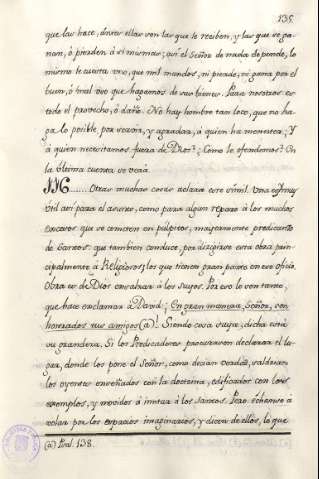 135
que las hace, ú ellas son las que se reciben, y las que se ga-
nan, ó pierden à si mismas; qui el Señor de nada depende, lo
mismo le cuesta uno, que mil mundos, ni pierde, ni gana por el
buen, ó mal uso que hagamos de sus bienes. Para nosotros es
todo el provecho, ó daño. No hay hombre tan loco, que no ha-
ga lo posible por servir, y agradar, à quien ha menester; Y
à quien necesitamos fuera de Dios? ¿Cómo le ofendemos? En
la última cuenta se verá.
Otras muchas cosas aclara este simil. Una es muy
útil asi para el asunto, como para algun reparo à los muchos
excesos que se cometen en púlpitos, mayormente predicando
de Santos: que tambien conduce, por dirigirse esta obra prin-
cipalmente à Religiosos; los que tienen gran parte en ese oficio.
Obra es de Dios ensalzar à los suyos. Por eso lo son tanto,
que hace exclamar à David: En gran manera, Señor, son
honrados tus amigos (a). Siendo cosa suya, dicha está
su grandeza. Si los Predicadores procurasen declarar el lu-
gar, donde los pone el Señor, como decian verdad, saldrian
los oyentes enseñados con la doctrina, edificados con los
exemplos, y movidos à imitar à los Santos. Pero echanse à
volar por los espacios imaginarios, y dicen de ellos, lo que
(a) Psal. 138.